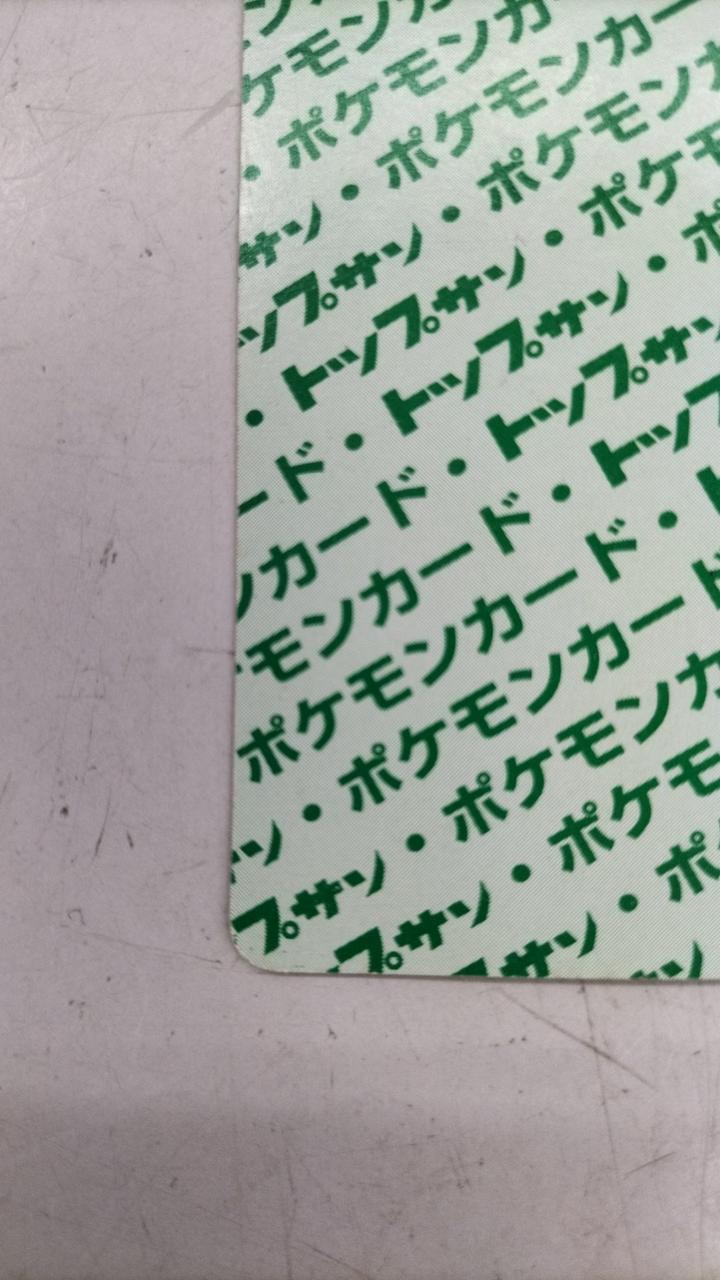 ン
ケモンカ
・ポケモンカ
サン・ポケモンカー
ップサン・ポケモンカ
・トップサン・ポケモ
ード・トップサン・ポ
ンカード・トップサン
モンカード・トップ
ポケモンカード・ト
ン・ポケモンカード
プサン・ポケモンカ
プサン・ポケモ
サン・ポ
ン